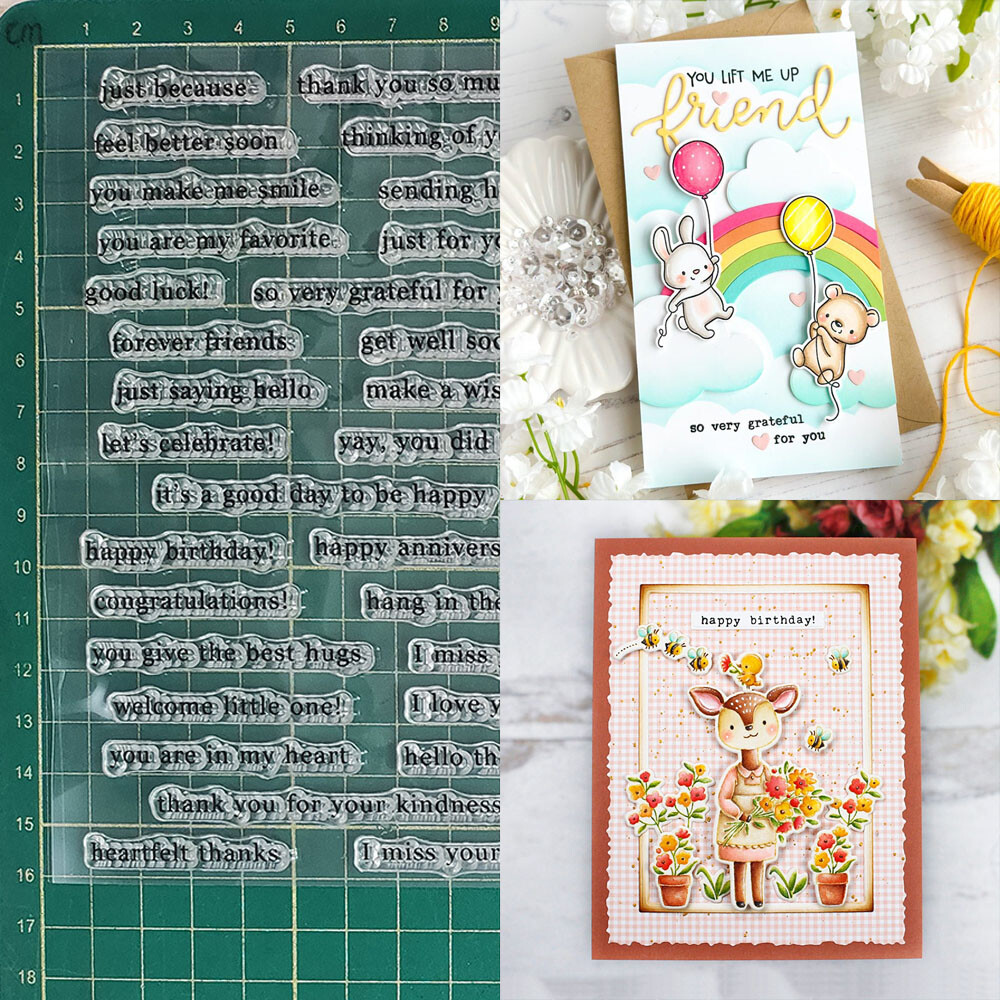 cm
1 2 3 4 5 6 7 8 9
1
2
3
4
5
6
7
8
9
10
11
12
13
14
15
16
17
18
just because
thank you so mu
feel better soon
thinking of y
you make me smile
sending h
you are my favorite
just for yo
good luck!
so very grateful for y
forever friends
get well soo
just saying hello
make a wis
let's celebrate!
yay, you did
it's a good day to be happy
happy birthday!
happy annivers
congratulations!
hang in the
you give the best hugs
I miss
welcome little one!
I love y
you are in my heart
hello th
thank you for your kindness
heartfelt thanks
I miss your
YOU LIFT ME UP
friend
so very grateful
for you
happy birthday!